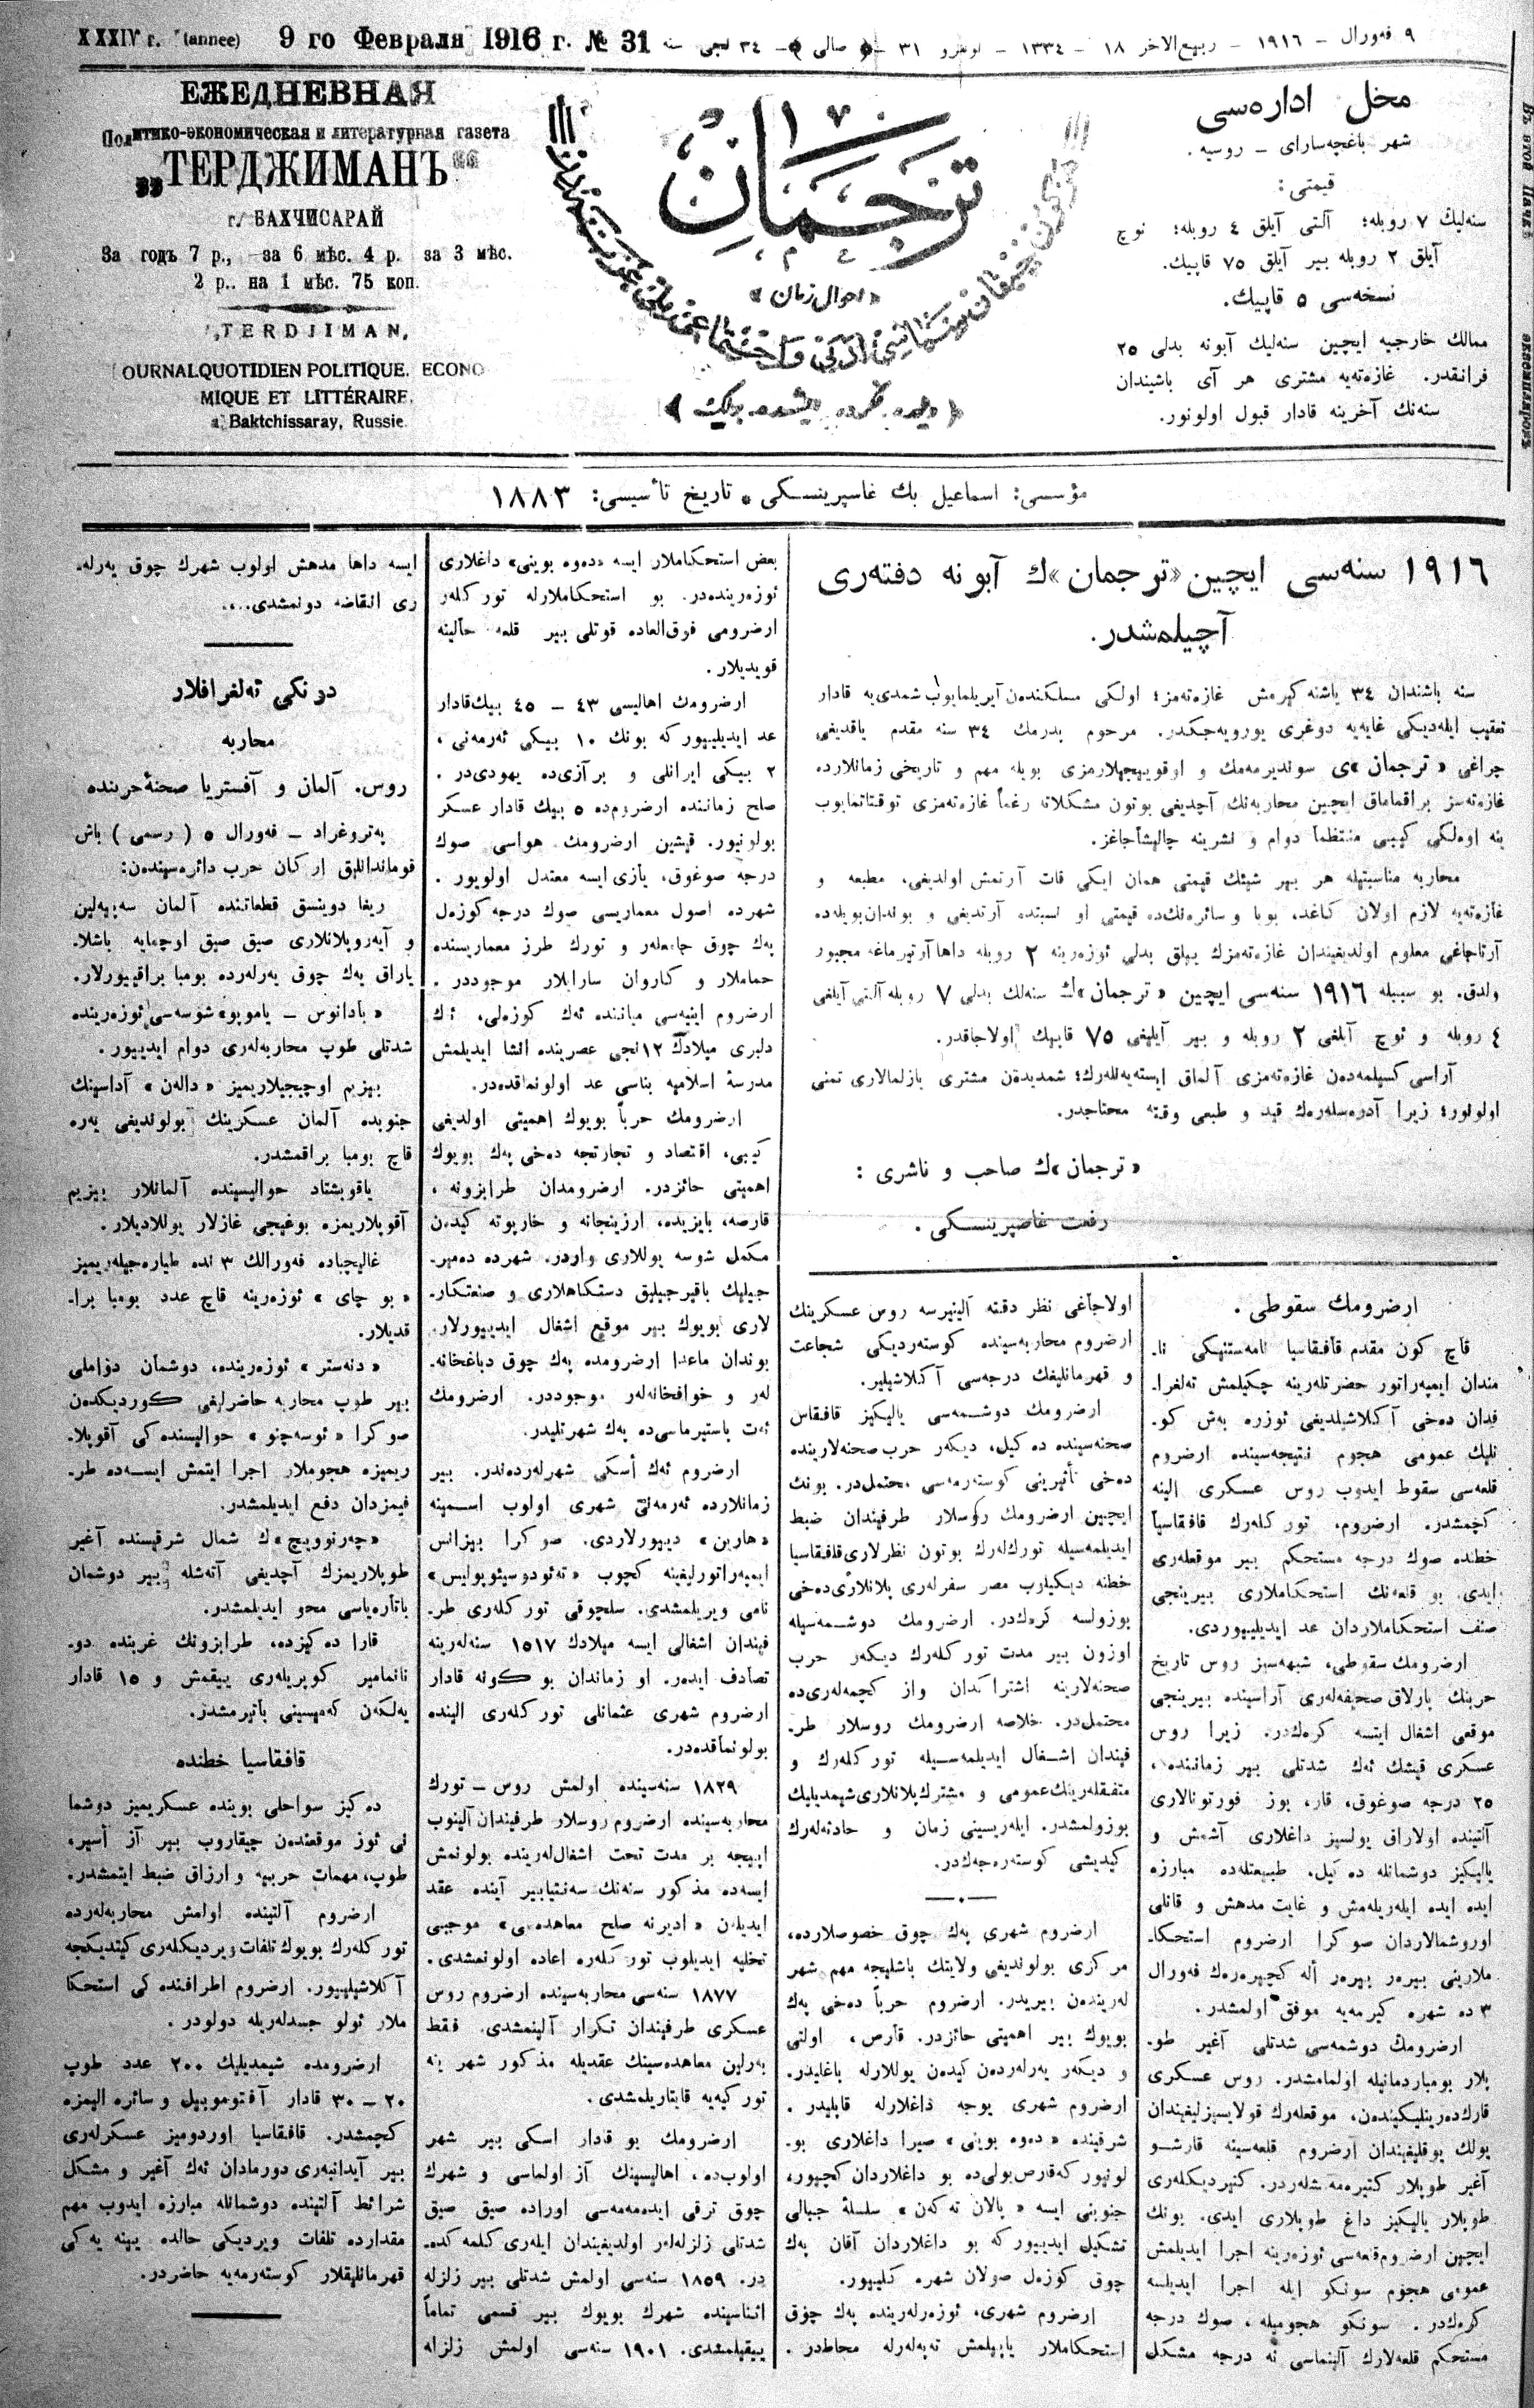 XXXIV г. (annee) 9 го Февраля 1916 г. № 31 ٣٤ لجی سنه — (صالی) — ٣١ نومرو — ١٣٣٤ — ١٨ ربیع‌الاخر — ١٩١٦ — ٩ فه‌ورال
ЕЖЕДНЕВНАЯ
Политико-экономическая и литературная газета
„ТЕРДЖИМАНЪ“
г. БАХЧИСАРАЙ
За годъ 7 р., за 6 мѣс. 4 р. за 3 мѣс.
2 р.. на 1 мѣс. 75 коп.
TERDJIMAN,
OURNAL QUOTIDIEN POLITIQUE, ECONO
MIQUE ET LITTÉRAIRE,
a Baktchissaray, Russie.
ترجمان
«احوال زمان»
«دیلده، فکرده، ایشده بیرلك»
محل اداره‌سی
شهر باغچه‌سارای — روسیه.
قیمتی:
سنه‌لیك ٧ روبله؛ آلتی آیلق ٤ روبله؛ ئوچ
آیلق ٢ روبله بیر آیلق ٧٥ قاپیك.
نسخه‌سی ٥ قاپیك.
ممالك خارجیه ایچین سنه‌لیك آبونه بدلی ٢٥
فرانقدر. غازه‌ته‌یه مشتری هر آی باشیندان
سنه‌نك آخرینه قادار قبول اولونور.
مؤسسی: اسماعیل بك غاسپرینسکی • تاریخ تأسیسی: ١٨٨٣
١٩١٦ سنه‌سی ایچین «ترجمان»ك آبونه دفته‌ری
آچیلمشدر.
سنه باشندان ٣٤ یاشنه کیرمش غازه‌ته‌مز؛ اولکی مسلکندن آیریلمایوب شمدی‌یه قادار
تعقیب ایله‌دیکی غایه‌یه دوغری یورویه‌جکدر. مرحوم پدرمك ٣٤ سنه مقدم یاقدیغی
چراغی «ترجمان»ی سوندیرمه‌مك و اوقویجیلارمزی بویله مهم و تاریخی زمانلارده
غازه‌ته‌سز براقماماق ایچین محاربه‌نك آچدیغی بوتون مشکلاته رغماً غازه‌ته‌مزی توقتاتمایوب
ینه اوه‌لکی کیبی منتظماً دوام و نشرینه چالیشاجاغز.
محاربه مناسبتیله هر بیر شیئك قیمتی همان ایکی قات آرتمش اولدیغی، مطبعه و
غازه‌ته‌یه لازم اولان کاغد، بویا و سائره‌نك‌ده قیمتی او نسبتده آرتدیغی و بوندان‌بویله‌ده
آرتاجاغی معلوم اولدیغیندان غازه‌ته‌مزك ییللق بدلی ئوزه‌رینه ٢ روبله داها آرتیرماغه مجبور
ولدق. بو سببله ١٩١٦ سنه‌سی ایچین «ترجمان»ك سنه‌لك بدلی ٧ روبله آلتی آیلغی
٤ روبله و ئوچ آیلغی ٢ روبله و بیر آیلیغی ٧٥ قاپیك اولاجاقدر.
آراسی کسیلمه‌دن غازه‌ته‌مزی آلماق ایسته‌یه‌نلرك؛ شمدیدن مشتری یازلمالاری تمنی
اولونور؛ زیرا آدره‌سله‌رك قید و طبعی وقته محتاجدر.
«ترجمان»ك صاحب و ناشری:
رفعت غاصپرینسکی.
ارضرومك سقوطی.
قاچ کون مقدم قافقاسیا نامه‌ستنیکی نا-
مندان ایمپه‌راتور حضرتله‌رینه چکیلمش ته‌لغرا-
فدان ده‌خی آکلاشیلدیغی ئوزره به‌ش کو-
نلیك عمومی هجوم نتیجه‌سینده ارضروم
قلعه‌سی سقوط ایدوب روس عسکری الینه
کچمشدر. ارضروم، تورکله‌رك قافقاسیا
خطنده صوك درجه مستحکم بیر موقعله‌ری
ایدی. بو قلعه‌نك استحکاملاری بیرینجی
صنف استحکاملاردان عد ایدیلییوردی.
ارضرومك سقوطی، شبهه‌سیز روس تاریخ
حربنك پارلاق صحیفه‌له‌ری آراسینده بیرینجی
موقعی اشغال ایتسه کره‌ك‌در. زیرا روس
عسکری قیشك ئه‌ك شدتلی بیر زماننده،
٢٥ درجه صوغوق، قار، بوز فورتونالاری
آلتینده اولاراق یولسیز داغلاری آشمش و
یالیکیز دوشمانله ده‌کیل، طبیعتله‌ده مبارزه
ایده ایده ایله‌ریله‌مش و غایت مدهش و قانلی
اوروشمالاردان صوکرا ارضروم استحکا-
ملارینی بیره‌ر بیره‌ر أله کچیره‌ره‌ك فه‌ورال
٣ ده شهره کیرمه‌یه موفق اولمشدر.
ارضرومك دوشمه‌سی شدتلی آغیر طو-
پلار بومباردمانیله اولمامشدر. روس عسکری
قارك‌ده‌رینلیکیندن، موقعله‌رك قولایسیزلیغیندان
یولك یوقلیغیندان ارضروم قلعه‌سینه قارشو
آغیر طوپلار کتیره‌مه‌مشله‌ردر. کتیردیکله‌ری
طوپلار یالیکیز داغ طوپلاری ایدی. بونك
ایچین ارضروم قلعه‌سی ئوزه‌رینه اجرا ایدیلمش
عمومی هجوم سونکو ایله اجرا ایدیلسه
کره‌ك‌در. سونکو هجومیله، صوك درجه
مستحکم قلعه‌لارك آلینماسی نه درجه مشکل
اولاجاغی نظر دقته آلینیرسه روس عسکرینك
ارضروم محاربه‌سینده کوسته‌ردیکی شجاعت
و قهرمانلیغك درجه‌سی آکلاشیلیر.
ارضرومك دوشمه‌سی یالیکیز قافقاس
صحنه‌سینده ده‌کیل، دیکه‌ر حرب صحنه‌لارینده
ده‌خی تأثیرینی کوسته‌رمه‌سی محتمل‌در. بونك
ایچین ارضرومك روسلار طرفیندان ضبط
ایدیلمه‌سیله تورك‌له‌رك بوتون نظرلاری قافقاسیا
خطنه دیکیلوب مصر سفرله‌ری پلانلاری ده‌خی
بوزولسه کره‌ك‌در. ارضرومك دوشمه‌سیله
اوزون بیر مدت تورکله‌رك دیکه‌ر حرب
صحنه‌لارینه اشتراکدان واز کچمه‌له‌ری‌ده
محتمل‌در. خلاصه ارضرومك روسلار طر-
فیندان اشغال ایدیلمه‌سیله تورکله‌رك و
متفقله‌رینك عمومی و مشترك پلانلاری شیمدیلیك
بوزولمشدر. ایله‌ریسینی زمان و حادثه‌له‌رك
کیدیشی کوسته‌ره‌جه‌ك‌در.
ارضروم شهری په‌ك چوق خصوصلارده،
مرکزی بولوندیغی ولایتك باشلیجه مهم شهر
له‌ریندن بیریدر. ارضروم حرباً ده‌خی په‌ك
بویوك بیر اهمیتی حائزدر. قارص، اولتی
و دیکه‌ر یه‌رله‌ردن کیدن یوللارله باغلیدر.
ارضروم شهری یوجه داغلارله قاپلیدر.
شرقینده «ده‌وه بوینی» صیرا داغلاری بو-
لونیور که قارص یولی‌ده بو داغلاردان کچیور،
جنوبنی ایسه «پالان ته‌کن» سلسلهٔ جبالی
تشکیل ایدییور که بو داغلاردان آقان په‌ك
چوق کوزه‌ل صولان شهره کلییور.
ارضروم شهری، ئوزه‌رله‌رینده په‌ك چوق
استحکاملار یاپیلمش ته‌په‌له‌رله محاط‌در.
بعض استحکاملار ایسه «ده‌وه بوینی» داغلاری
ئوزه‌رینده‌در. بو استحکاملارله تورکله‌ر
ارضرومی فوق‌العاده قوتلی بیر قلعه حالینه
قویدیلار.
ارضرومك اهالیسی ٤٣ — ٤٥ بیك قادار
عد ایدیلییور که بونك ١٠ بیکی ئه‌رمه‌نی،
٢ بیکی ایرانلی و بر آزی‌ده یهودی‌در.
صلح زماننده ارضروم‌ده ٥ بیك قادار عسکر
بولونیور. قیشین ارضرومك هواسی صوك
درجه صوغوق، یازی ایسه معتدل اولویور.
شهرده اصول معماریسی صوك درجه کوزه‌ل
په‌ك چوق جامعله‌ر و تورك طرز معماریسنده
حماملار و کاروان سارایلار موجوددر.
ارضروم ابنیه‌سی میاننده ئه‌ك کوزه‌لی، ئه‌ك
دلبری میلادك ١٢نجی عصرینده انشا ایدیلمش
مدرسهٔ اسلامیه بناسی عد اولونماقده‌در.
ارضرومك حرباً بویوك اهمیتی اولدیغی
کیبی، اقتصاد و تجارتجه ده‌خی په‌ك بویوك
اهمیتی حائزدر. ارضرومدان طرابزونه،
قارصه، بایزیده، ارزینجانه و خارپوته کیدن
مکمل شوسه یوللاری واردر. شهرده ده‌میر-
جیلیك باقیرجیلیق دستکاهلاری و صنعتکار-
لاری بویوك بیر موقع اشغال ایدییورلار.
بوندان ماعدا ارضرومده په‌ك چوق دباغخانه-
له‌ر و خوافخانه‌له‌ر موجوددر. ارضرومك
ئه‌ت باستیرماسی‌ده په‌ك شهرتلیدر.
ارضروم ئه‌ك أسکی شهرله‌رده‌ندر. بیر
زمانلارده ئه‌رمه‌نی شهری اولوب اسمینه
«هارین» دییورلاردی. صوکرا بیزانس
ایمپه‌راتورلیغینه کچوب «ته‌ئودوسیئوپولیس»
نامی ویریلمشدی. سلجوقی تورکله‌ری طر-
فیندان اشغالی ایسه میلادك ١٥١٧ سنه‌له‌رینه
تصادف ایده‌ر. او زماندان بو کونه قادار
ارضروم شهری عثمانلی تورکله‌ری الینده
بولونماقده‌در.
١٨٢٩ سنه‌سینده اولمش روس — تورك
محاربه‌سینده ارضروم روسلار طرفیندان آلینوب
اییجه بر مدت تحت اشغال‌له‌رینده بولونمش
ایسه‌ده مذکور سنه‌نك سه‌نتیابیر آینده عقد
ایدیلن «ادیرنه صلح معاهده‌سی» موجبی
تخلیه ایدیلوب تورکله‌ره اعاده اولونمشدی.
١٨٧٧ سنه‌سی محاربه‌سینده ارضروم روس
عسکری طرفیندان تکرار آلینمشدی. فقط
به‌رلین معاهده‌سینك عقدیله مذکور شهر ینه
تورکیه‌یه قایتاریلمشدی.
ارضرومك بو قادار اسکی بیر شهر
اولوب‌ده، اهالیسینك آز اولماسی و شهرك
چوق ترقی ایده‌مه‌مه‌سی اوراده صیق صیق
شدتلی زلزله‌له‌ر اولدیغیندان ایله‌ری کلمه‌کده-
در. ١٨٥٩ سنه‌سی اولمش شدتلی بیر زلزله
اثناسینده شهرك بویوك بیر قسمی تماماً
ییقیلمشدی. ١٩٠١ سنه‌سی اولمش زلزله
ایسه داها مدهش اولوب شهرك چوق یه‌رله-
ری انقاضه دونمشدی....
دونکی ته‌لغرافلار
محاربه
روس. آلمان و آفستریا صحنهٔ حربنده
په‌تروغراد — فه‌ورال ٥ (رسمی) باش
قومانداﻧلیق ارکان حرب دائره‌سیندن:
ریغا دوینسق قطعاتنده آلمان سه‌پپه‌لین
و آیه‌روپلانلاری صیق صیق اوچمایه باشلا-
یاراق په‌ك چوق یه‌رله‌رده بومبا براقییورلار.
شدتلی طوپ محاربه‌له‌ری دوام ایدییور.
بیزیم اوچیجیلاریمیز «داله‌ن» آداسینك
جنوبده آلمان عسکرینك بولوندیغی یه‌ره
قاچ بومبا براقمشدر.
یاقوبشتاد حوالیسینده آلمانلار بیزیم
آقوپلاریمزه بوغیجی غازلار یوللادیلار.
غالیچیاده فه‌ورالك ٣ نده طیاره‌جیله‌ریمیز
«بوچاچ» ئوزه‌رینه قاچ عدد بومبا برا-
قدیلار.
«دنه‌ستر» ئوزه‌رینده، دوشمان دواملی
بیر طوپ محاربه حاضرلیغی کوردیکدن
صوکرا «ئوسه‌چنو» حوالیسنده کی آقوپلا-
ریمیزه هجوملار اجرا ایتمش ایسه‌ده طر-
فیمزدان دفع ایدیلمشدر.
«چه‌رنوویچ»ك شمال شرقیسنده آغیر
طوپلاریمزك آچدیغی آتشله بیر دوشمان
باتاره‌یاسی محو ایدیلمشدر.
قارا ده‌کیزده، طرابزونك غربنده دو-
نانمامیز کوپریله‌ری ییقمش و ١٥ قادار
یه‌لکن که‌میسینی باتیرمشدر.
قافقاسیا خطنده
ده‌کیز سواحلی بوینده عسکریمیز دوشما
نی ئوز موقعندن چیقاروب بیر آز أسیر،
طوپ، مهمات حربیه و ارزاق ضبط ایتمشدر.
ارضروم آلتینده اولمش محاربه‌له‌رده
تورکله‌رك بویوك تلفات ویردیکله‌ری کیتدیکجه
آکلاشیلییور. ارضروم اطرافنده کی استحکا
ملار ئولو جسدله‌ریله دولودر.
ارضرومده شیمدیلیك ٢٠٠ عدد طوپ
٢٠ — ٣٠ قادار آفتوموبیل و سائره الیمزه
کچمشدر. قافقاسیا اوردومیز عسکرله‌ری
بیر آیدانبه‌ری دورمادان ئه‌ك آغیر و مشکل
شرائط آلتینده دوشمانله مبارزه ایدوب مهم
مقدارده تلفات ویردیکی حالده یینه یه‌کی
قهرمانلیقلار کوسته‌رمه‌یه حاضردر.